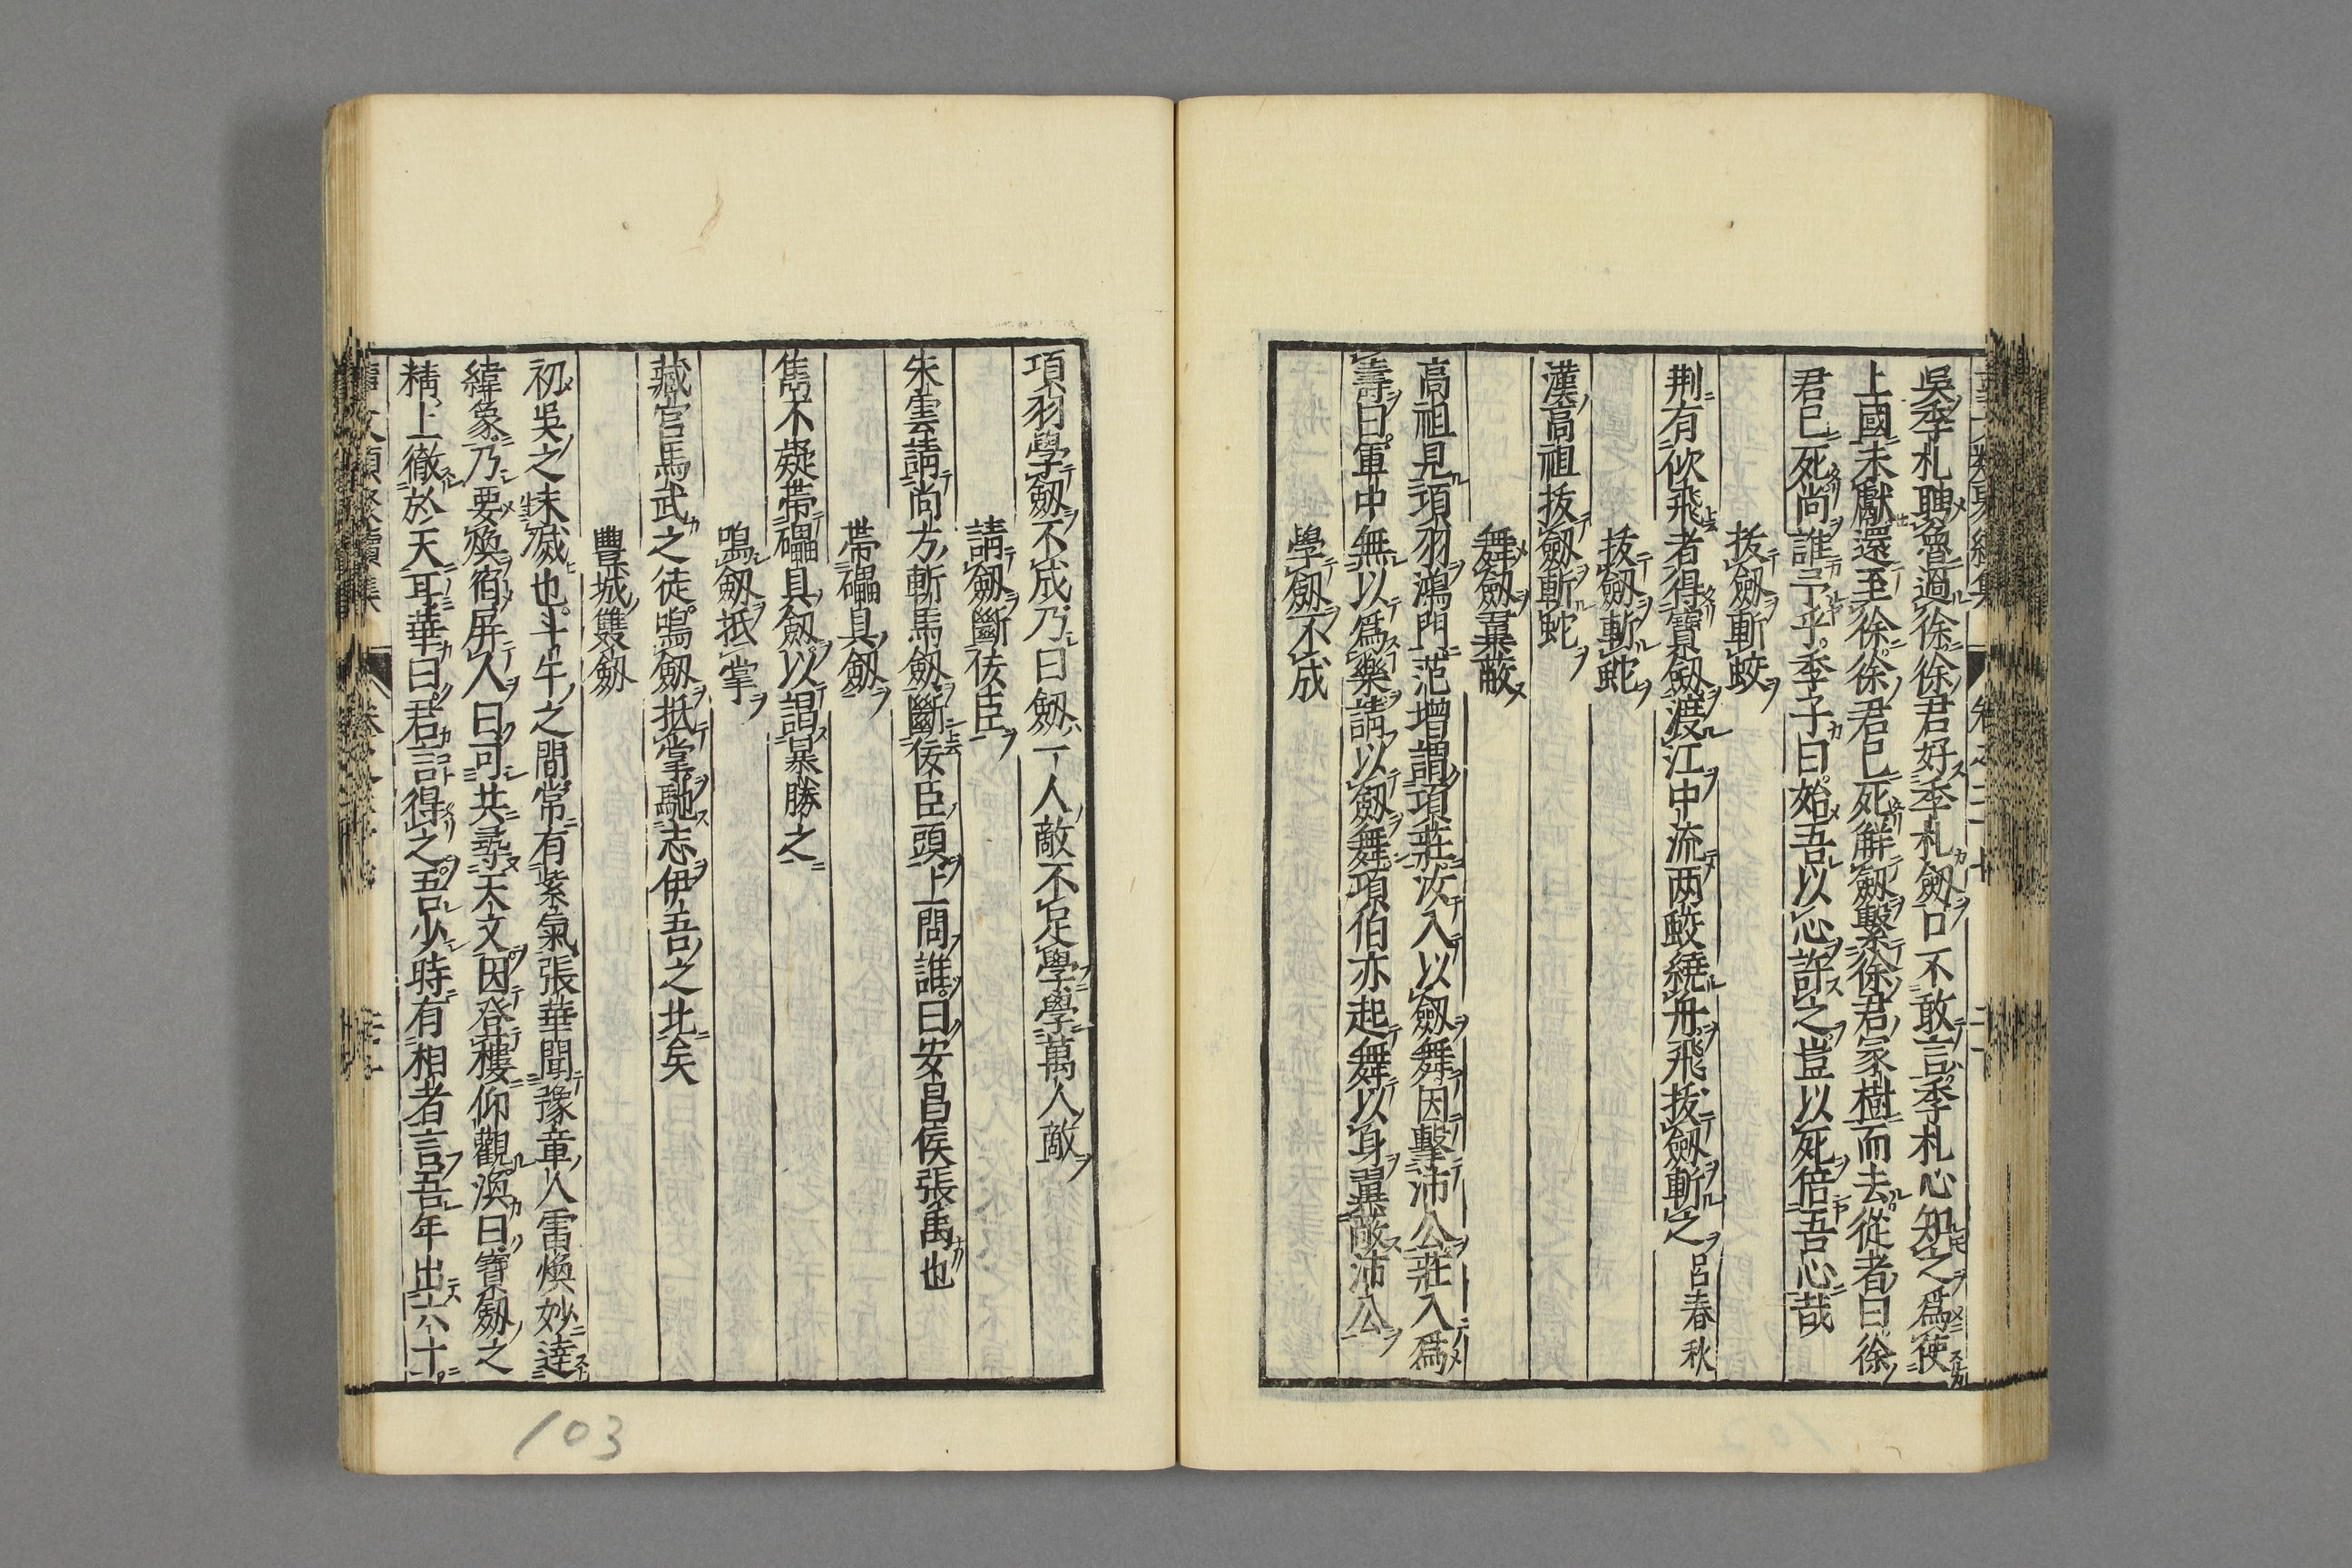 吳季札聘魯過徐徐君好季札劔口不敢言季札心知之爲使
上國未獻還至徐徐君已死解劔繫徐君冢樹而去從者曰徐
君已死尚誰予乎季子曰始吾以心許之豈以死倍吾心哉
拔劔斬蛟
荆有佽飛者得寶劔渡江中流两蛟繞舟飛拔劔斬之 呂春秋
拔劔斬蛇
漢高祖拔劔斬蛇
舞劔翼蔽
高祖見項羽鴻門范增謂項莊汝入以劔舞因擊沛公莊入爲
壽曰軍中無以爲樂請以劔舞項伯亦起舞以身翼蔽沛公
學劔不成
項羽學劔不成乃曰劔一人敵不足學學萬人敵
請劔斷佞臣
朱雲請尚方斬馬劔斷佞臣頭上問誰曰安昌侯張禹也
帯礌具劔
雋不疑帯礌具劔以謁暴勝之
鳴劔抵掌
臧宫馬武之徒鳴劔抵掌馳志伊吾之北矣
豊城雙劔
初吳之未滅也斗牛之間常有紫氣張華聞豫章人雷煥妙達
緯象乃要煥宿屏人曰可共尋天文因登樓仰觀煥曰寶劔之
精上徹於天耳華曰君言得之吾少時有相者言吾年出六十
103